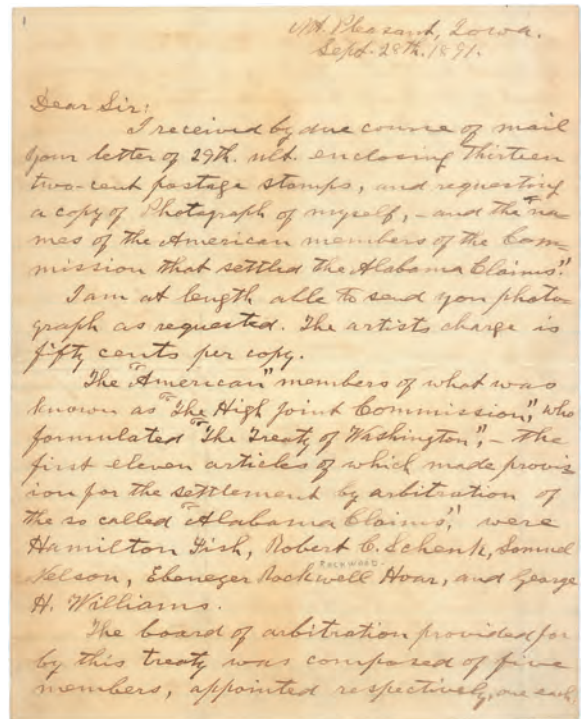 1
Mt. Pleasant, Iowa.
Sept. 28th. 1891.
Dear Sir:
I received by due course of mail
your letter of 29th. ult. enclosing thirteen
two-cent postage stamps, and requesting
a copy of Photograph of myself, - and the "na-
mes of the American members of the Com-
mission that settled the Alabama Claims."
I am at length able to send you photo-
graph as requested. The artists charge is
fifty cents per copy.
The "American" members of what was
known as "The High Joint Commission," who
formulated "The Treaty of Washington", - the
first eleven articles of which made provis
ion for the settlement by arbitration of
the so called "Alabama Claims," were
Hamilton Fish, Robert C. Schenk, Samuel
Nelson, Ebenezer Rockwell Hoar, and George
ROCKWOOD
H. Williams.
The board of arbitration provided for
by this treaty was composed of five
members, appointed respectively, one each